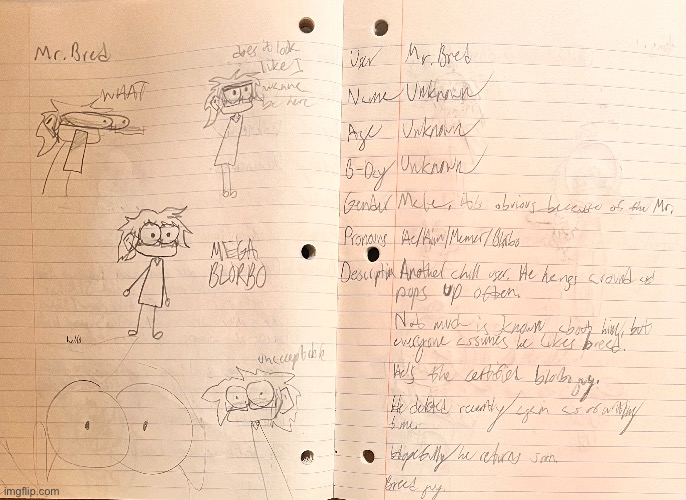 Mr. Bred
WHAT
does it look
like I
wanna
be here
MEGA
BLORBO
hello
unacceptable
User Mr. Bred
Name Unknown
Age Unknown
B-Day Unknown
Gender Male, it's obvious because of the Mr.
Pronouns He/Him/Memer/Blorbo
Description Another chill user. He hangs around and
pops up often.
Not much is known about him, but
everyone assumes he likes bread.
He's the certified blorbo guy.
He deleted recently/
Hopefully he returns soon
Bread guy
imgflip.com